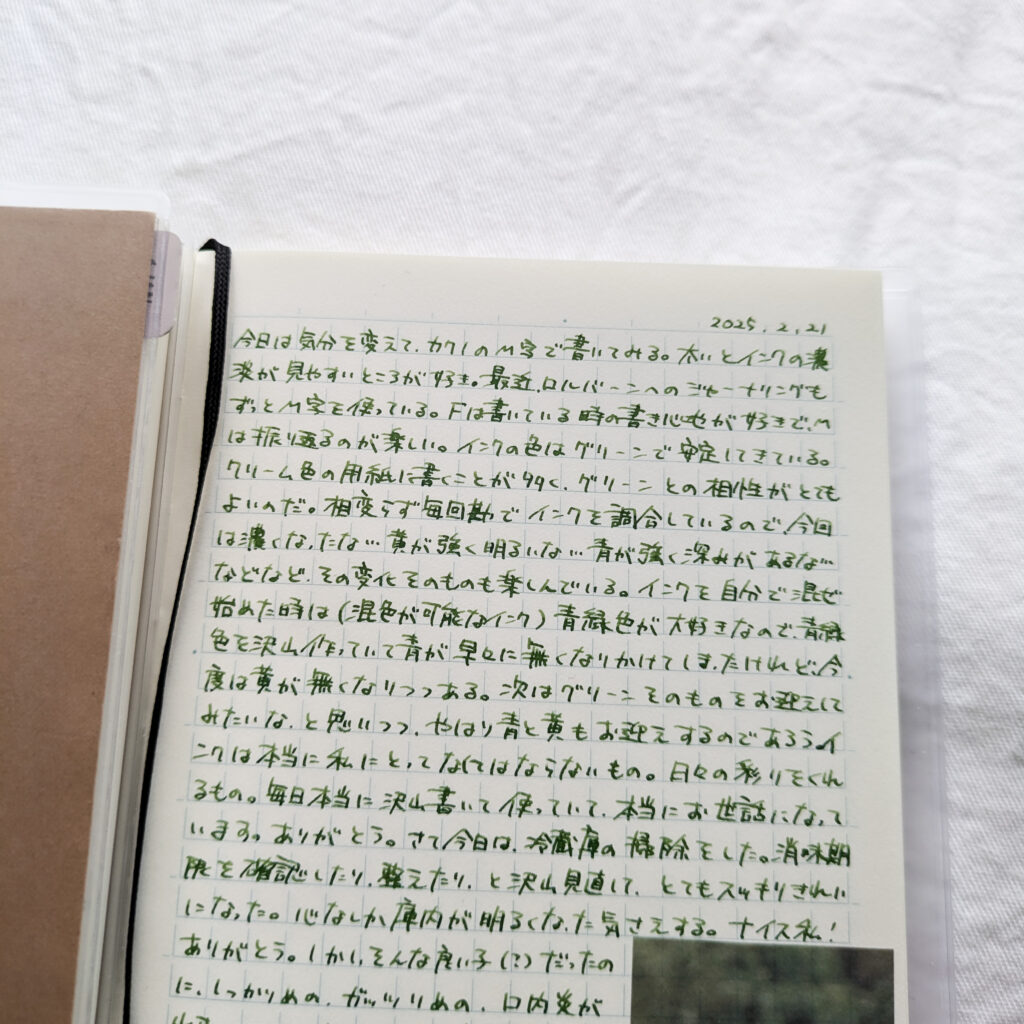 2025.2.21
今日は気分を変えて、カクノのM字で書いてみる。太いとインクの濃
淡が見やすいところが好き。最近、ロルバーンへのジャーナリングも
ずっとM字を使っている。Fは書いている時の書き心地が好きで、M
は振り返るのが楽しい。インクの色はグリーンで安定してきている。
クリーム色の用紙に書くことが多く、グリーンとの相性がとても
よいのだ。相変らず毎回勘でインクを調合しているので、今回
は濃くなったな…黄が強く明るいな…青が強く深みがあるな…
などなど、その変化そのものも楽しんでいる。インクを自分で混ぜ
始めた時は(混色が可能なインク)青緑色が大好きなので、青緑
色を沢山作っていて青が早々に無くなりかけてしまったけれど、今
度は黄が無くなりつつある。次はグリーンそのものをお迎えして
みたいな、と思いつつ、やはり青と黄もお迎えするのであろう。イ
ンクは本当に私にとってなくてはならないもの。日々の彩りをくれ
るもの。毎日本当に沢山書いて使っていて、本当にお世話になって
います。ありがとう。さて今日は、冷蔵庫の掃除をした。消味期
限を確認したり、整えたり、と沢山見直して、とてもスッキリきれい
になった。心なしか庫内が明るくなった気さえする。ナイス私!
ありがとう。しかし、そんな良い子(?)だったの
に、しっかりめの、ガッツリめの、口内炎が